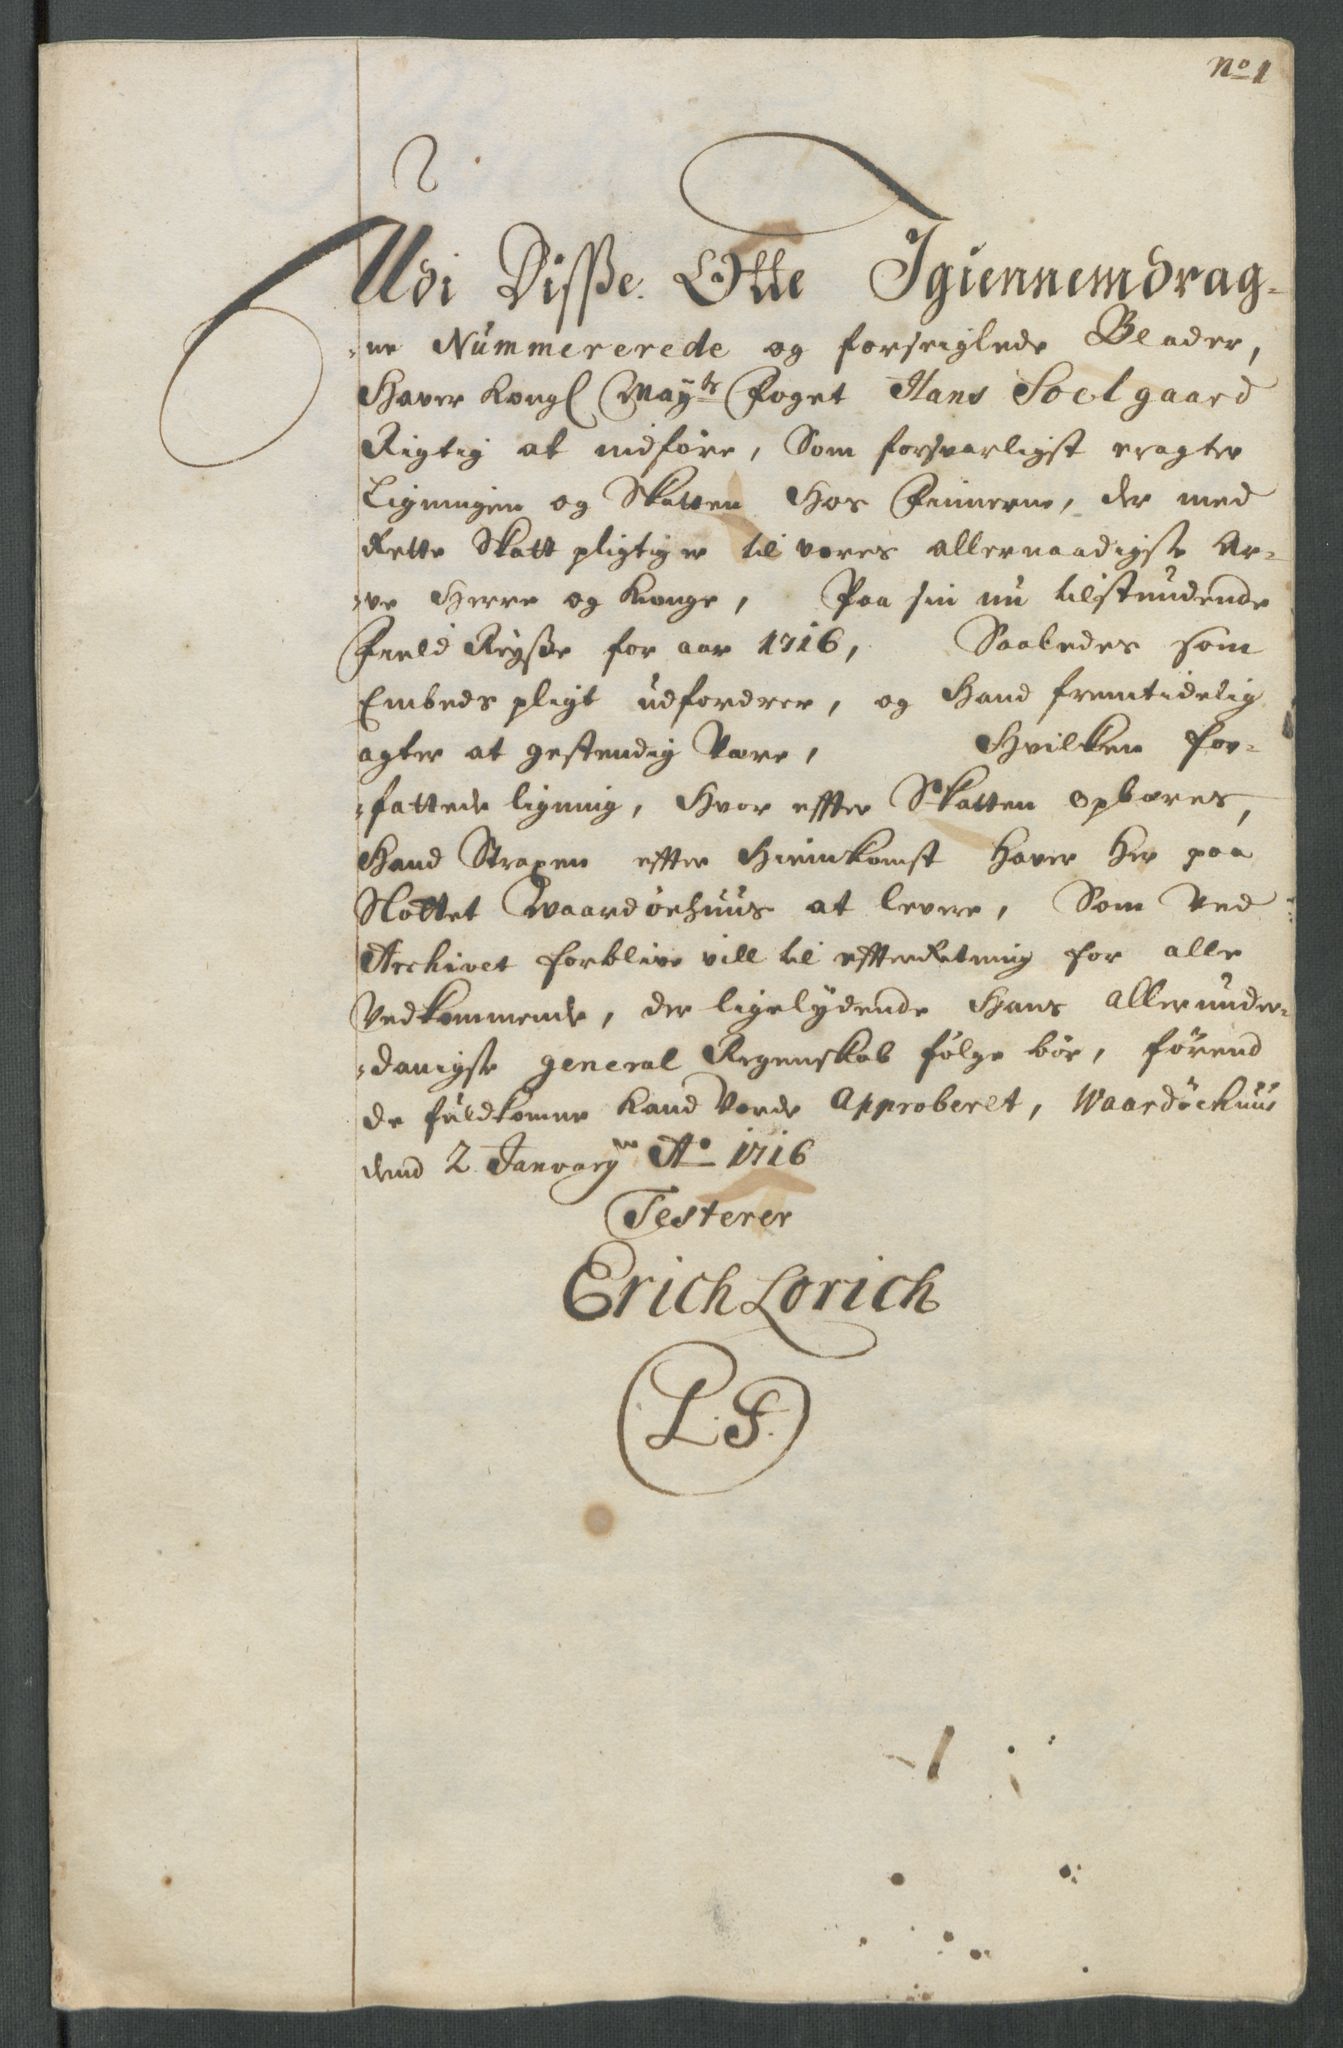 No 1
Udi Disse Otte Igiennemdrag-
-ne Nummererede og forseiglede Blader,
Haver Kongl Mayts Foget Hans Soelgaard
Rigtig at indføre, Som forsvarligst eragter
Ligningen og Skatten Hos Finnerne, der med
Rette Skatt pligtig er til vores allernaadigste Ar-
-ve Herre og Konge, Paa sin nu tilstundende
Field Reysse for aar 1716, Saaledes som
Embeds pligt udfordrer, og Hand fremtidelig
agter at gestendig Være, Hvilken for-
-fattede ligning, Hvor effter Skatten opbæres,
Hand Strapen effter Hiemkomst haver her paa
Slottet Waardøehuus at levere, Som Ved
Archivet forblive vill til effterRetning for alle
Vedkommende, der ligelydende Hans allerunder-
-danigste general Regenskab følge bør, førend
de fuldkomne kand Vorde Approberet, Waardöehuus
dend 2 January Ao 1716
Testerer
Erich Lorich
L. S.